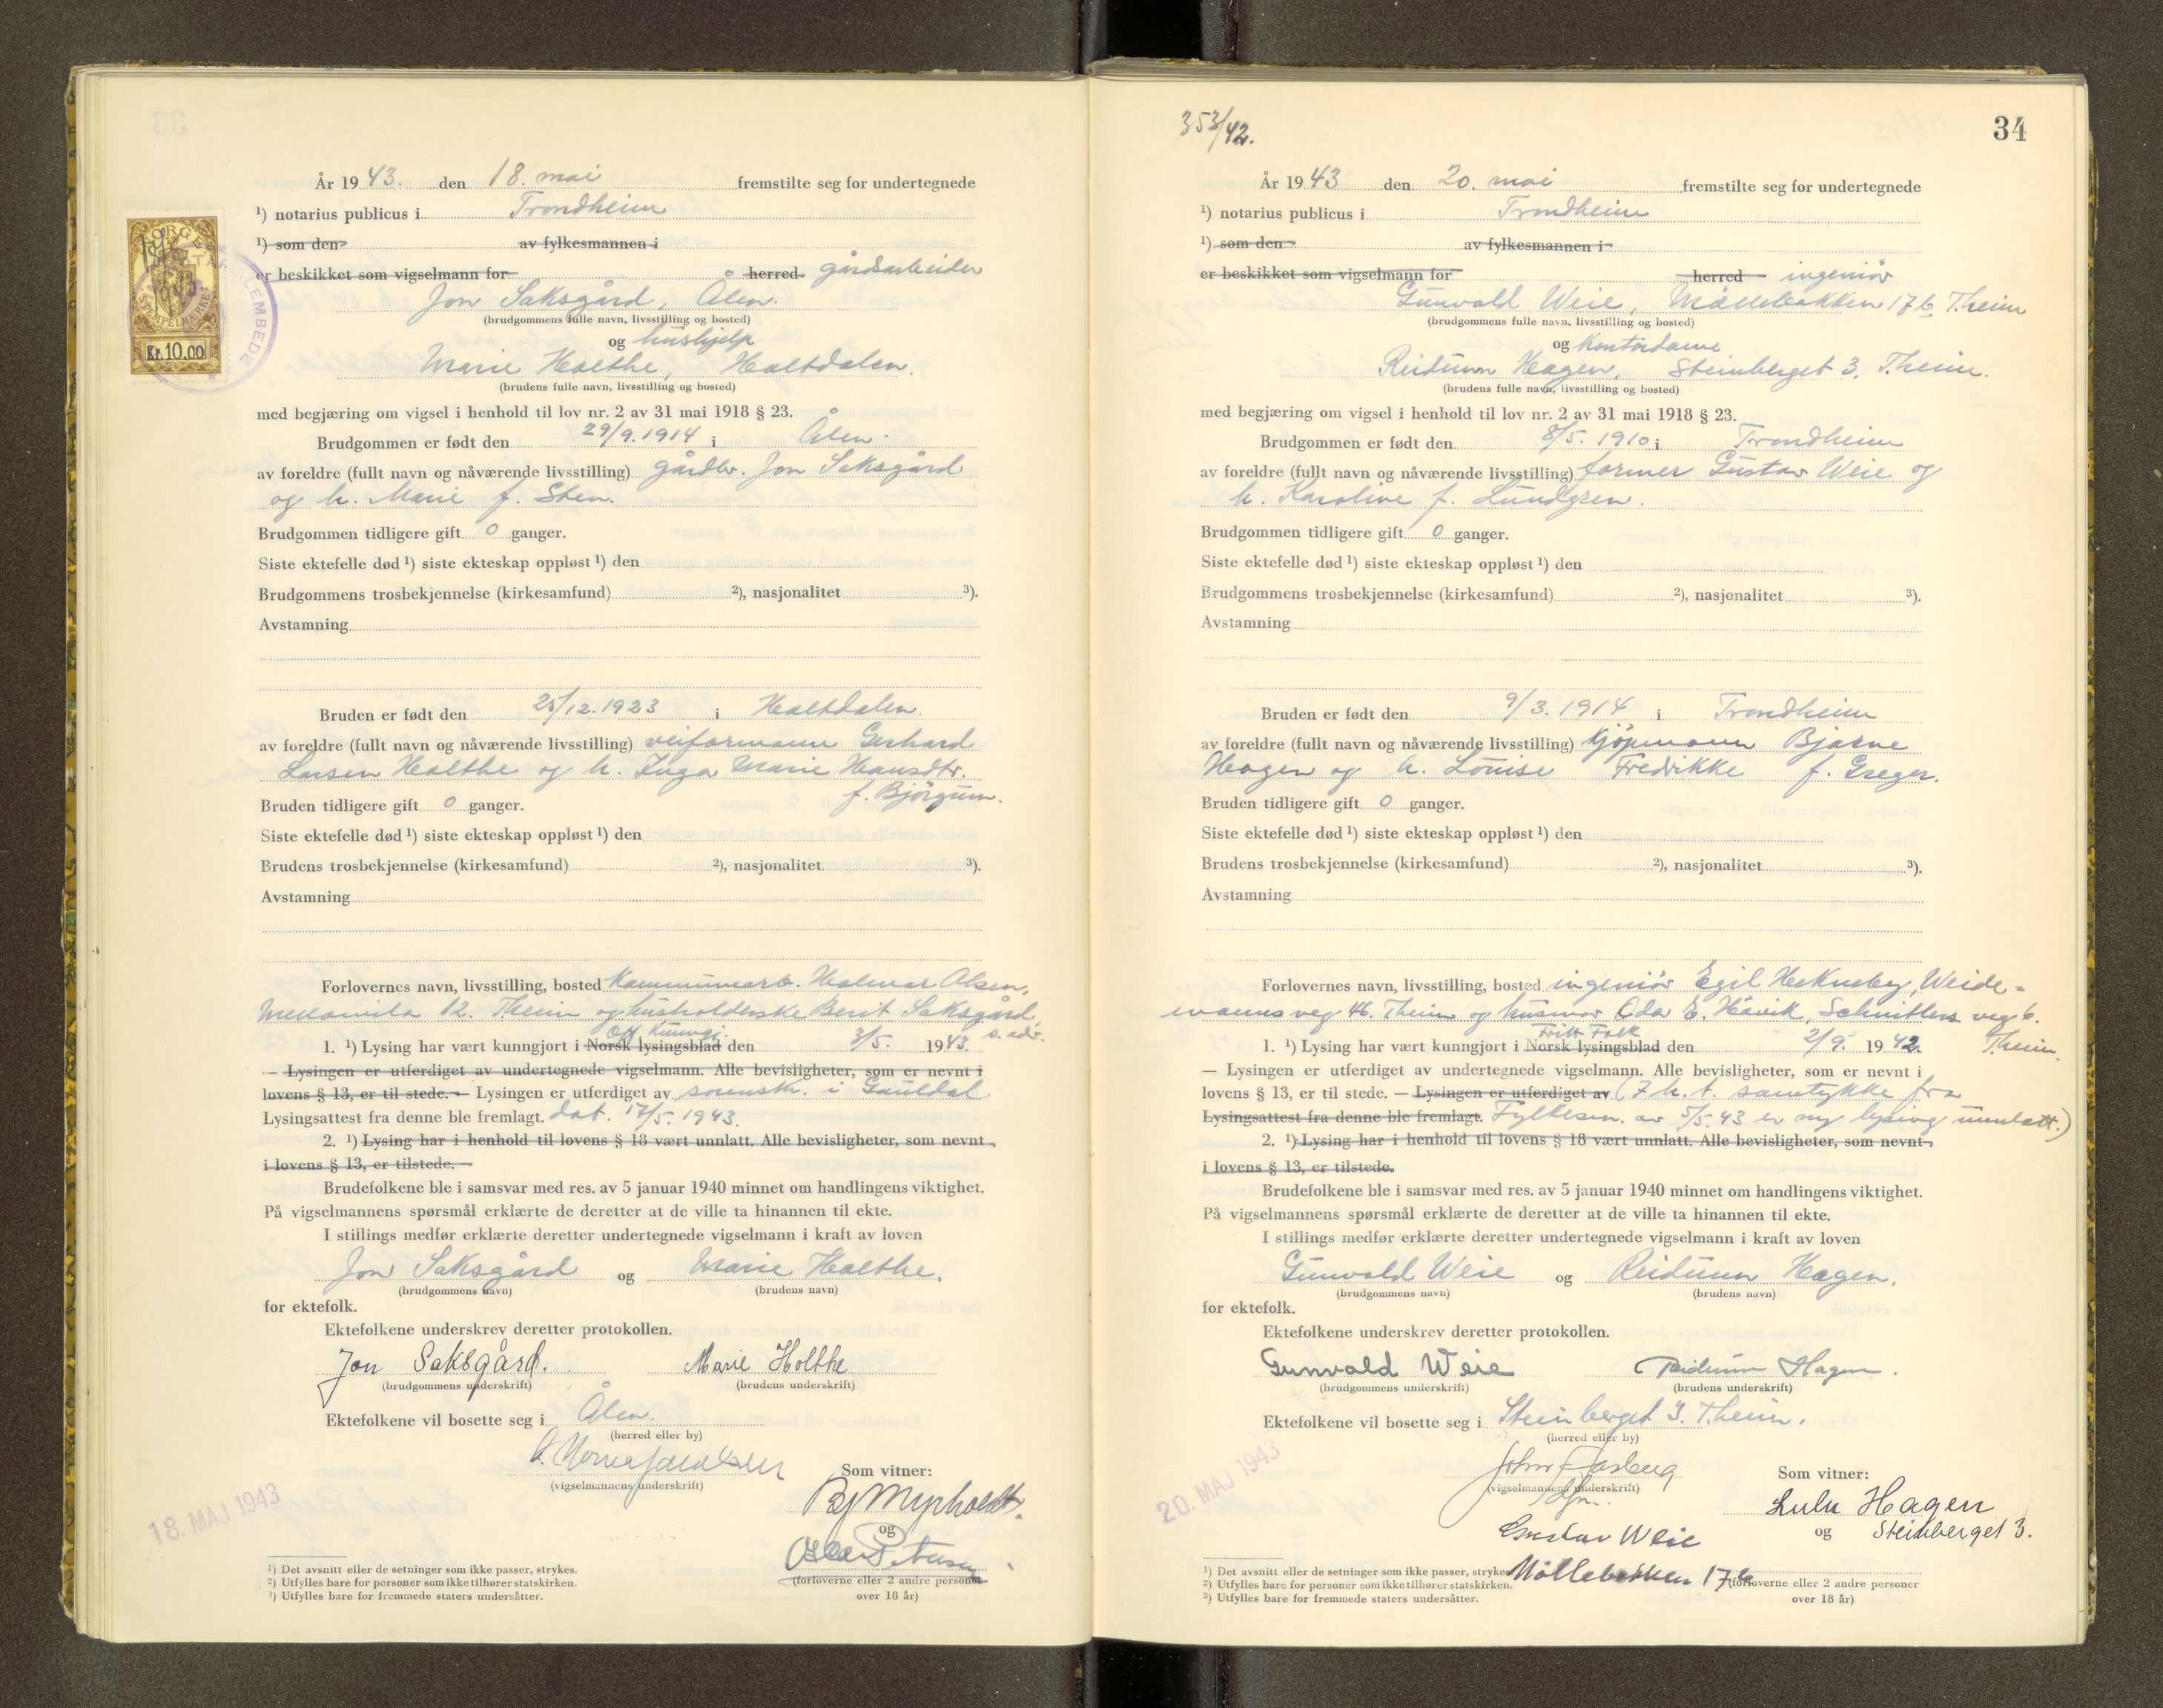 År 19 43. den 18. mai fremstilte seg for undertegnede
¹) notarius publicus i Trondheim
¹) som den av fylkesmannen i
er beskikket som vigselmann for herred gårdsarbeider
Jon Saksgård, Ålen.
(brudgommens fulle navn, livsstilling og bosted)
og hushjelp
Marie Holthe, Holtdalen.
(brudens fulle navn, livsstilling og bosted)
med begjæring om vigsel i henhold til lov nr. 2 av 31 mai 1918 § 23.
Brudgommen er født den 29/9. 1914 i Ålen.
av foreldre (fullt navn og nåværende livsstilling) gårdbr. Jon Saksgård
og h. Marie f. Sten.
Brudgommen tidligere gift 0 ganger.
Siste ektefelle død ¹) siste ekteskap oppløst ¹) den
Brudgommens trosbekjennelse (kirkesamfund) ²), nasjonalitet ³).
Avstamning
Bruden er født den 25/12. 1923 i Holtdalen.
av foreldre (fullt navn og nåværende livsstilling) veiformann Gerhard
Larsen Holthe og h. Inga Marie Hansdtr.
f. Bjørgum.
Bruden tidligere gift 0 ganger.
Siste ektefelle død ¹) siste ekteskap oppløst ¹) den
Brudens trosbekjennelse (kirkesamfund) ²), nasjonalitet ³).
Avstamning
Forlovernes navn, livsstilling, bosted Kommunearb. Halvar Olsen,
Mellomila 12. Theim og husholderske Berit Saksgård
s. adr.
Off. kunngj.
1. ¹) Lysing har vært kunngjort i Norsk lysingsblad den 3/5. 1943.
— Lysingen er utferdiget av undertegnede vigselmann. Alle bevisligheter, som er nevnt i
lovens § 13, er til stede. — Lysingen er utferdiget av sorensk. i Gauldal
Lysingsattest fra denne ble fremlagt. dat. 17/5. 1943.
2. ¹) Lysing har i henhold til lovens § 18 vært unnlatt. Alle bevisligheter, som nevnt
i lovens § 13, er tilstede. —
Brudefolkene ble i samsvar med res. av 5 januar 1940 minnet om handlingens viktighet.
På vigselmannens spørsmål erklærte de deretter at de ville ta hinannen til ekte.
I stillings medfør erklærte deretter undertegnede vigselmann i kraft av loven
Jon Saksgård og Marie Holthe.
(brudgommens navn) (brudens navn)
for ektefolk.
Ektefolkene underskrev deretter protokollen.
Jon Saksgård. Marie Holthe
(brudgommens underskrift) (brudens underskrift)
Ektefolkene vil bosette seg i Ålen.
(herred eller by)
(vigselmannens underskrift)
Som vitner:
Bj Myrholdt.
og
(forloverne eller 2 andre personer
over 18 år)
18. MAJ 1943
¹) Det avsnitt eller de setninger som ikke passer, strykes.
²) Utfylles bare for personer som ikke tilhører statskirken.
³) Utfylles bare for fremmede staters undersåtter.
NORGE
STEMPELMERKE
Kr. 10.00
353/42.
34
År 19 43 den 20. mai fremstilte seg for undertegnede
¹) notarius publicus i Trondheim
¹) som den av fylkesmannen i
er beskikket som vigselmann for herred ingeniør
Gunvald Weie, Møllebakken 17b Theim
(brudgommens fulle navn, livsstilling og bosted)
og Kontordame
Reidunn Hagen, Steinberget 3. Theim.
(brudens fulle navn, livsstilling og bosted)
med begjæring om vigsel i henhold til lov nr. 2 av 31 mai 1918 § 23.
Brudgommen er født den 8/5. 1910 i Trondheim
av foreldre (fullt navn og nåværende livsstilling) former Gustav Weie og
h. Karoline f. Lundgren.
Brudgommen tidligere gift 0 ganger.
Siste ektefelle død ¹) siste ekteskap oppløst ¹) den
Brudgommens trosbekjennelse (kirkesamfund) ²), nasjonalitet ³).
Avstamning
Bruden er født den 9/3. 1914 i Trondheim
av foreldre (fullt navn og nåværende livsstilling) Kjøpmann Bjarne
Hagen og h. Louise Fredrikke f. Greger.
Bruden tidligere gift 0 ganger.
Siste ektefelle død ¹) siste ekteskap oppløst ¹) den
Brudens trosbekjennelse (kirkesamfund) ²), nasjonalitet ³).
Avstamning
Forlovernes navn, livsstilling, bosted ingeniør Egil Hekneby, Weide-
manns veg 46. Theim og husmor Oda E. Håvik, Schnitlers veg 6.
Theim.
Fritt Folk
1. ¹) Lysing har vært kunngjort i Norsk lysingsblad den 2/9. 1942.
— Lysingen er utferdiget av undertegnede vigselmann. Alle bevisligheter, som er nevnt i
lovens § 13, er til stede. — Lysingen er utferdiget av (I h. t. samtykke fra
Lysingsattest fra denne ble fremlagt. Fylkesm. av 5/5. 43 er ny lysing unnlatt.)
2. ¹) Lysing har i henhold til lovens § 18 vært unnlatt. Alle bevisligheter, som nevnt
i lovens § 13, er tilstede.
Brudefolkene ble i samsvar med res. av 5 januar 1940 minnet om handlingens viktighet.
På vigselmannens spørsmål erklærte de deretter at de ville ta hinannen til ekte.
I stillings medfør erklærte deretter undertegnede vigselmann i kraft av loven
Gunvald Weie og Reidunn Hagen.
(brudgommens navn) (brudens navn)
for ektefolk.
Ektefolkene underskrev deretter protokollen.
Gunvald Weie Reidunn Hagen.
(brudgommens underskrift) (brudens underskrift)
Ektefolkene vil bosette seg i Steinberget 3. Theim.
(herred eller by)
(vigselmannens underskrift)
Som vitner:
Lulu Hagen
og Steinberget 3.
Gustav Weie
Møllebakken 17b
(forloverne eller 2 andre personer
over 18 år)
20. MAJ 1943
¹) Det avsnitt eller de setninger som ikke passer, strykes
²) Utfylles bare for personer som ikke tilhører statskirken.
³) Utfylles bare for fremmede staters undersåtter.